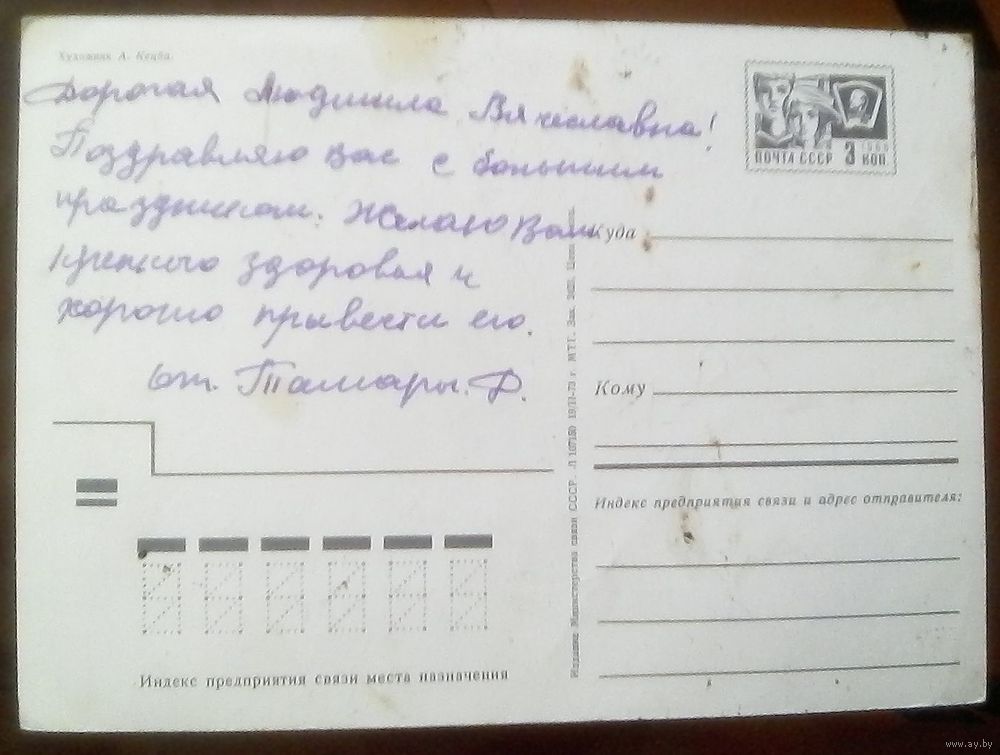 Художник А.
Дорогая Людмила Вячеславна!
Поздравляю вас с большим
праздником. Желаю Вам
крепкого здоровья и
хорошо привести его.
от. Тамары. Ф.
ПОЧТА СССР 3 КОП
1966
Куда
Кому
Индекс предприятия связи и адрес отправителя:
Индекс предприятия связи места назначения
Издание Министерства связи СССР. Л 107180 19/II-73 г. МТГ. Зак.
www.ay.by